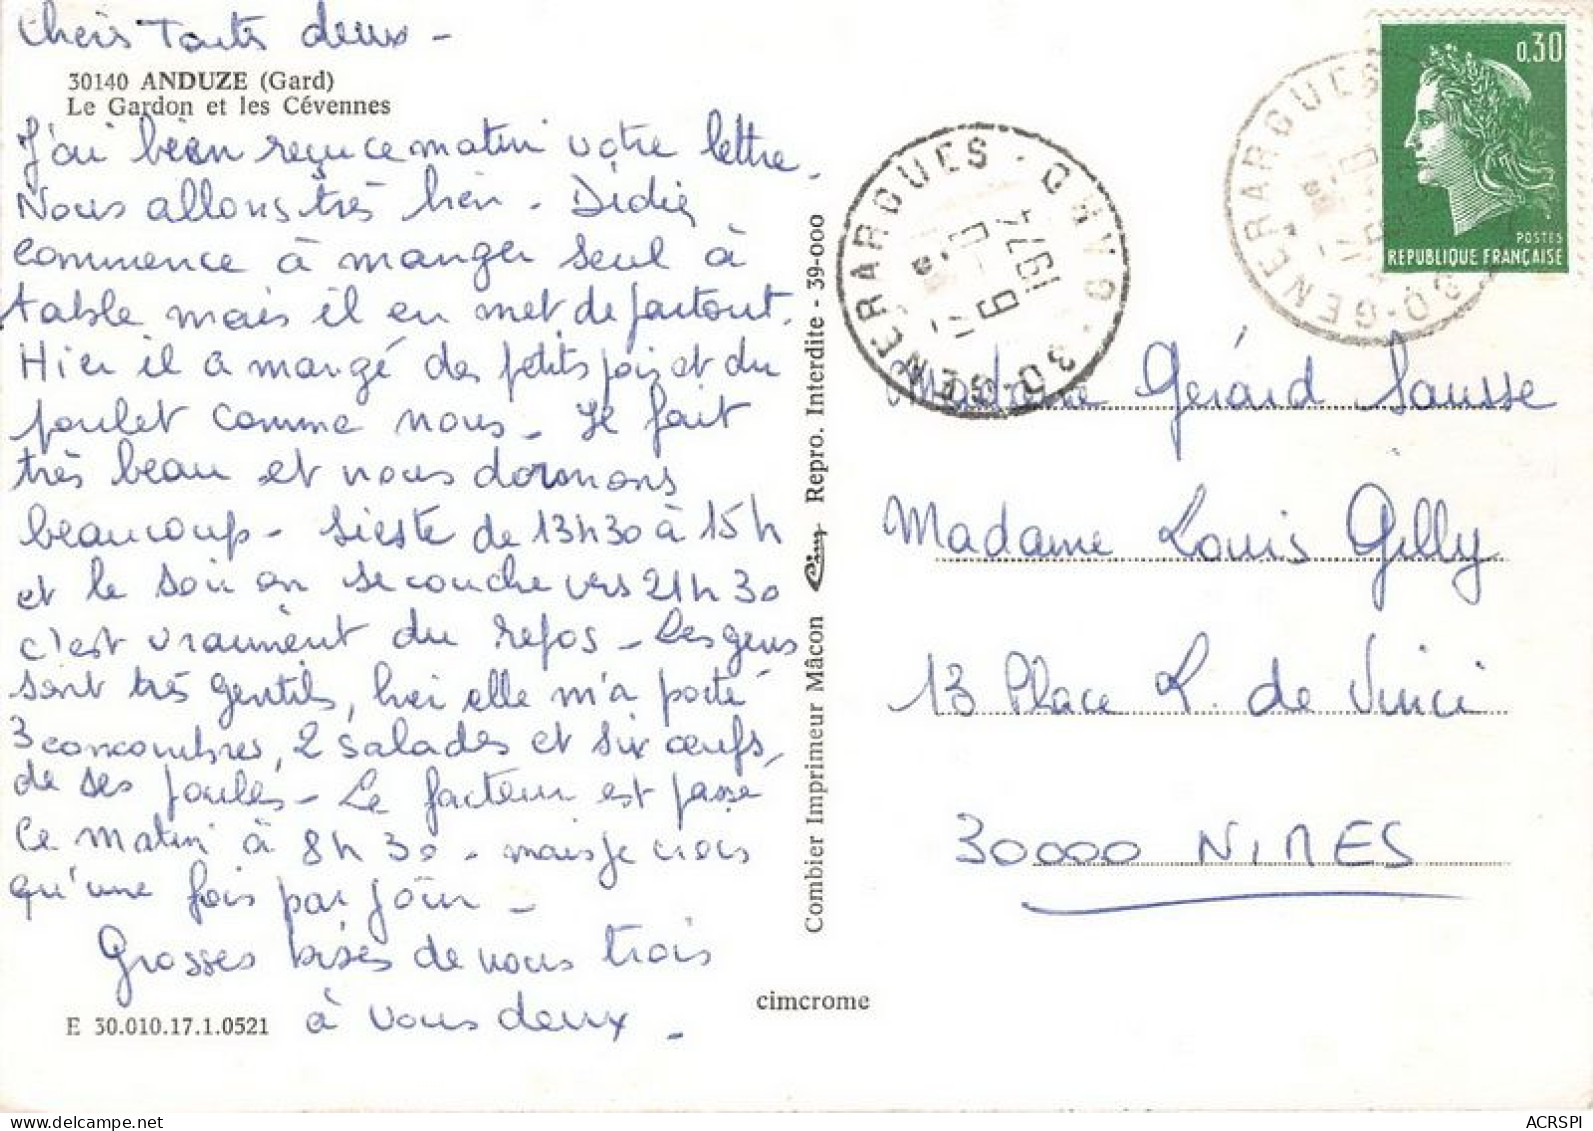 Chers Toutes deux -
30140 ANDUZE (Gard)
Le Gardon et les Cévennes
J'ai bien reçu ce matin votre lettre.
Nous allons très bien - Didier
commence à manger seul à
table mais il en met de partout.
Hier il a mangé des petits pois et du
poulet comme nous - Il fait
très beau et nous dormons
beaucoup - Sieste de 13h30 à 15h
et le soir on se couche vers 21h30
c'est vraiment du repos - Les gens
sont très gentils, hier elle m'a porté
3 concombres, 2 salades et six œufs,
de ses poules - Le facteur est passé
ce matin à 8h30 - mais je crois
qu'une fois par jour -
Grosses bises de nous trois
à vous deux -
E 30.010.17.1.0521
cimcrome
Combier Imprimeur Mâcon Cim Repro. Interdite - 39-000
30-GENERARGUES · GARD
6
1974
0,30
POSTES
REPUBLIQUE FRANÇAISE
30-GENERARGUES
Madame Gérard Sausse
Madame Louis Gilly
13 Place L. de Vinci
30000 NIMES
delcampe.net
ACRSPI